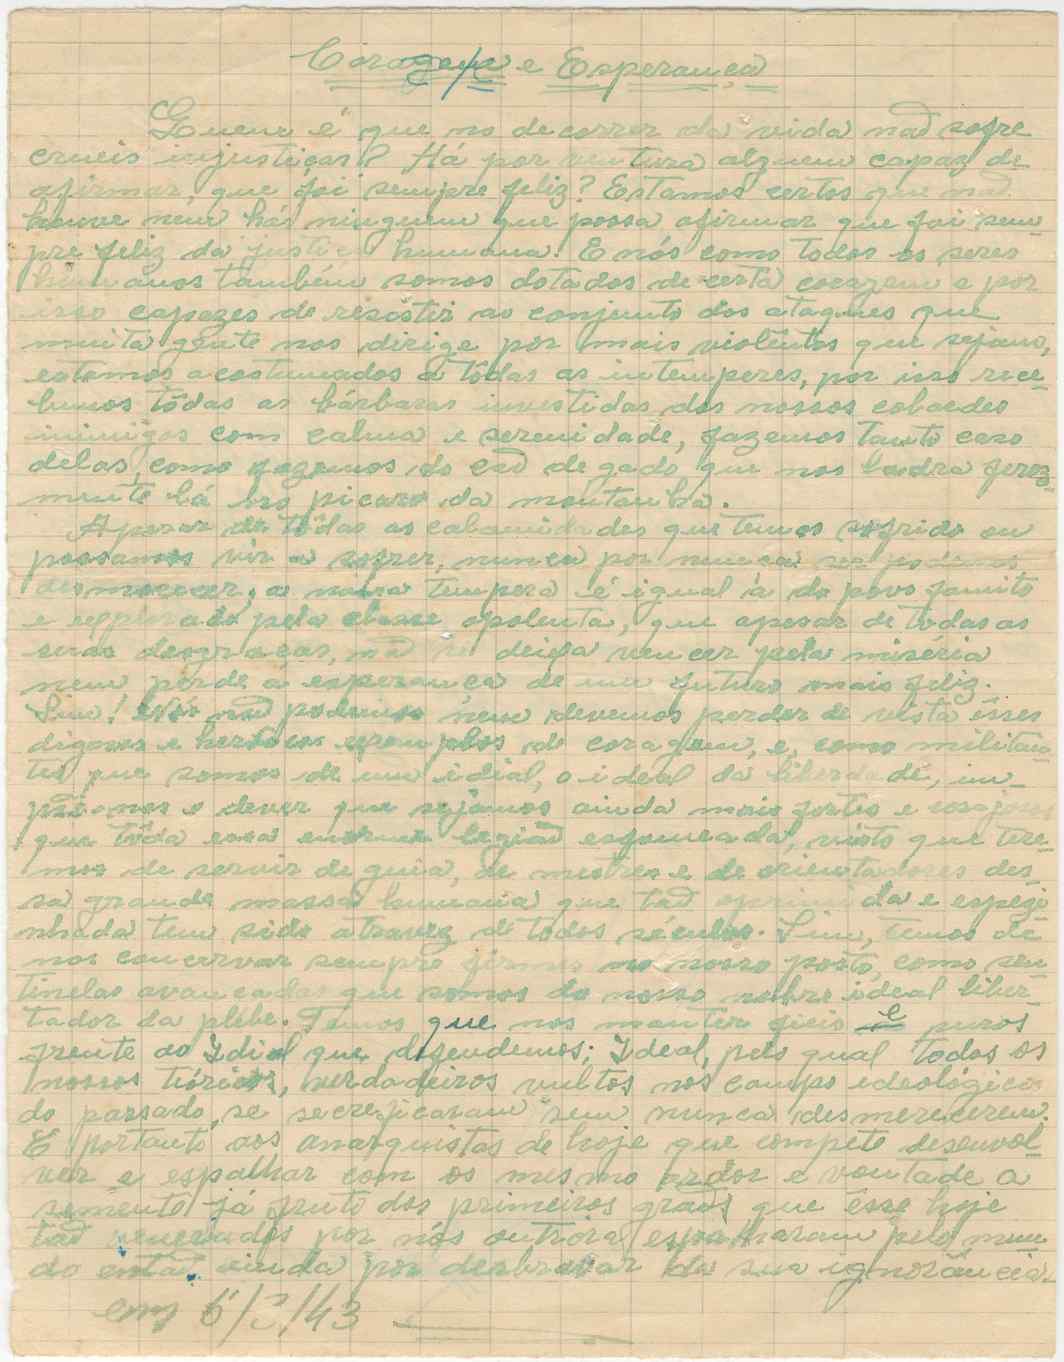 Coragem e Esperança
Quem é que no decorrer da vida não sofre
crueis injustiças? Há por ventura alguem capaz de
afirmar, que foi sempre feliz? Estamos certos que não
houve nem há ninguem que possa afirmar que foi sem-
pre feliz da justiça humana! E nós como todos os seres
humanos também somos dotados de certa coragem e por
isso capazes de resistir ao conjunto dos ataques que
muita gente nos dirige por mais violentos que sejam,
estamos acostumados a tôdas as intemperes, por isso rece-
bemos tôdas as bárbaras investidas dos nossos cobardes
inimigos com calma e serenidade, fazemos tanto caso
delas, como fazemos do cão de gado que nos ladra feroz-
mente lá no picaro da montanha.
Apesar de tôdas as calamidades que temos sofrido ou
possamos vir a sofrer, nunca por nunca se podemos
desmerecer, a nossa tempera é igual á do povo faminto
e explorado pela classe opolenta, que apesar de todas as
suas desgraças, não se deixa vencer pela miséria
nem perde a esperança de um futuro mais feliz.
Sim! Nós não podemos nem devemos perder de vista êsses
dignos e heróicos exemplos de coragem, e, como militan-
tes que somos de um idial, o ideal da liberdade, im-
põe-nos o dever que sejamos ainda mais fortes e corajosos
que tôda essa enorme legião esfomeada, visto que tere-
mos de servir de guia, de mestres e de orientadores des-
sa grande massa humana que tão oprimida e espezi-
nhada tem sido atravez de todos séculos. Sim, temos de
nos concervar sempre firmes no nosso posto, como sen-
tinelas avançadas que somos do nosso nobre ideal liber-
tador da plebe. Temos que nos manter fieis e puros
frente ao Idial que defendemos; Ideal, pelo qual todos os
nossos tióricos, verdadeiros vultos nos campo ideológico
do passado, se secreficaram sem nunca desmerecerem.
E portanto aos anarquistas de hoje que compete desenvol-
ver e espalhar com os mesmo ardor e vontade a
semente já fruto dos primeiros grãos que êsse hoje
tão venerados por nós outrora espalharam pelo mun-
do então ainda por desbravar da sua ignorância.
em 6/3/43